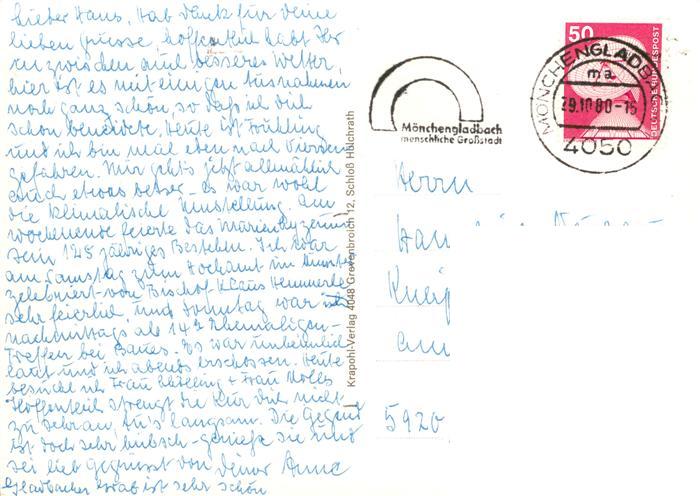 Lieber Hans, Hab Dank für deine
lieben Grüsse hoffentlich habt Ihr
inzwischen auch besseres Wetter,
hier ist es mit einigen Ausnahmen
noch ganz schön so daß ich dich
schon beneidete. Heute ist Frühling
und ich bin mal eben nach Viersen
gefahren. Mir geht's jetzt allmählich
auch etwas besser - es war wohl
die klimatische Umstellung. Am
Wochenende feierte das Marienlyzeum
sein 125 jähriges Bestehen. Ich war
am Samstag zum Hochamt im Münster
zelebriert von Bischof Klaus Hemmerle
sehr feierlich und Sonntag war
nachmittags als 142 Ehemaligen-
Treffen bei Baues. Es war unheimlich
laut und ich abends erschossen. Heute
besuche ich Frau + Frau Nolles
Hoffentlich strengt die Kur dich nicht
zu sehr an. Tu's langsam. Die Gegend
ist doch sehr hübsch - genieße sie und
sei lieb gegrüsst von deiner Anne
Gladbacher ist sehr schön
Krapohl-Verlag 4048 Grevenbroich 12, Schloß Hülchrath
Mönchengladbach
menschliche Großstadt
50
DEUTSCHE BUNDESPOST
MÖNCHENGLADB
ma
29.10.80-15
4050
Herrn
Han
Kneip
am
5920